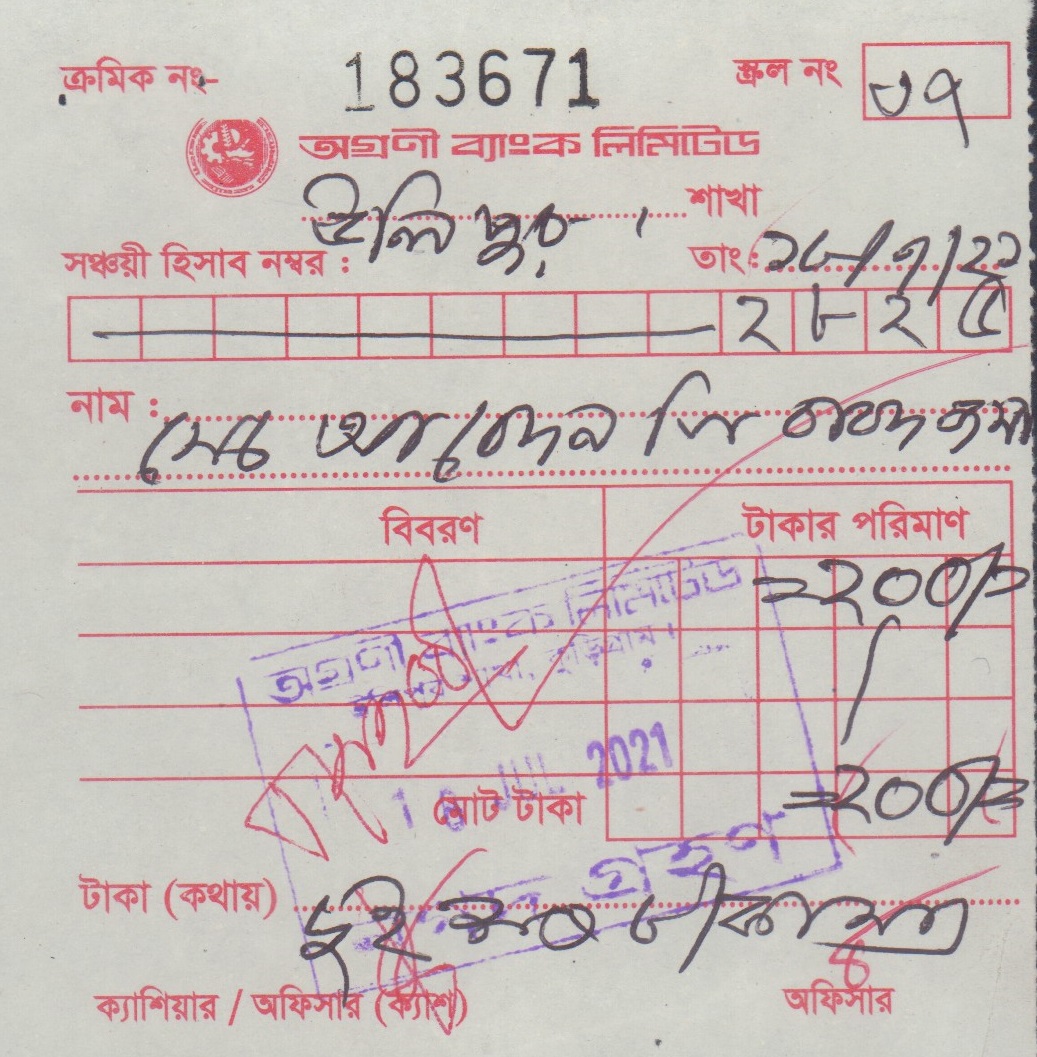 ক্রমিক নং- 183671 স্ক্রল নং ৩৭
অগ্রণী ব্যাংক লিমিটেড
উলিপুর শাখা
সঞ্চয়ী হিসাব নম্বর : তাং: ১৮/৭/২১
২ ৮ ২ ৫
নাম : মোঃ আবেদন ফি বাবদ জমা
বিবরণ টাকার পরিমাণ
=২০০/=
অগ্রণী ব্যাংক লিমিটেড
শাখা, কুড়িগ্রাম।
JUL 2021
মোট টাকা =২০০/=
গ্রহণ
টাকা (কথায়) দুই শত টাকা মাত্র
ক্যাশিয়ার / অফিসার (ক্যাশ) অফিসার